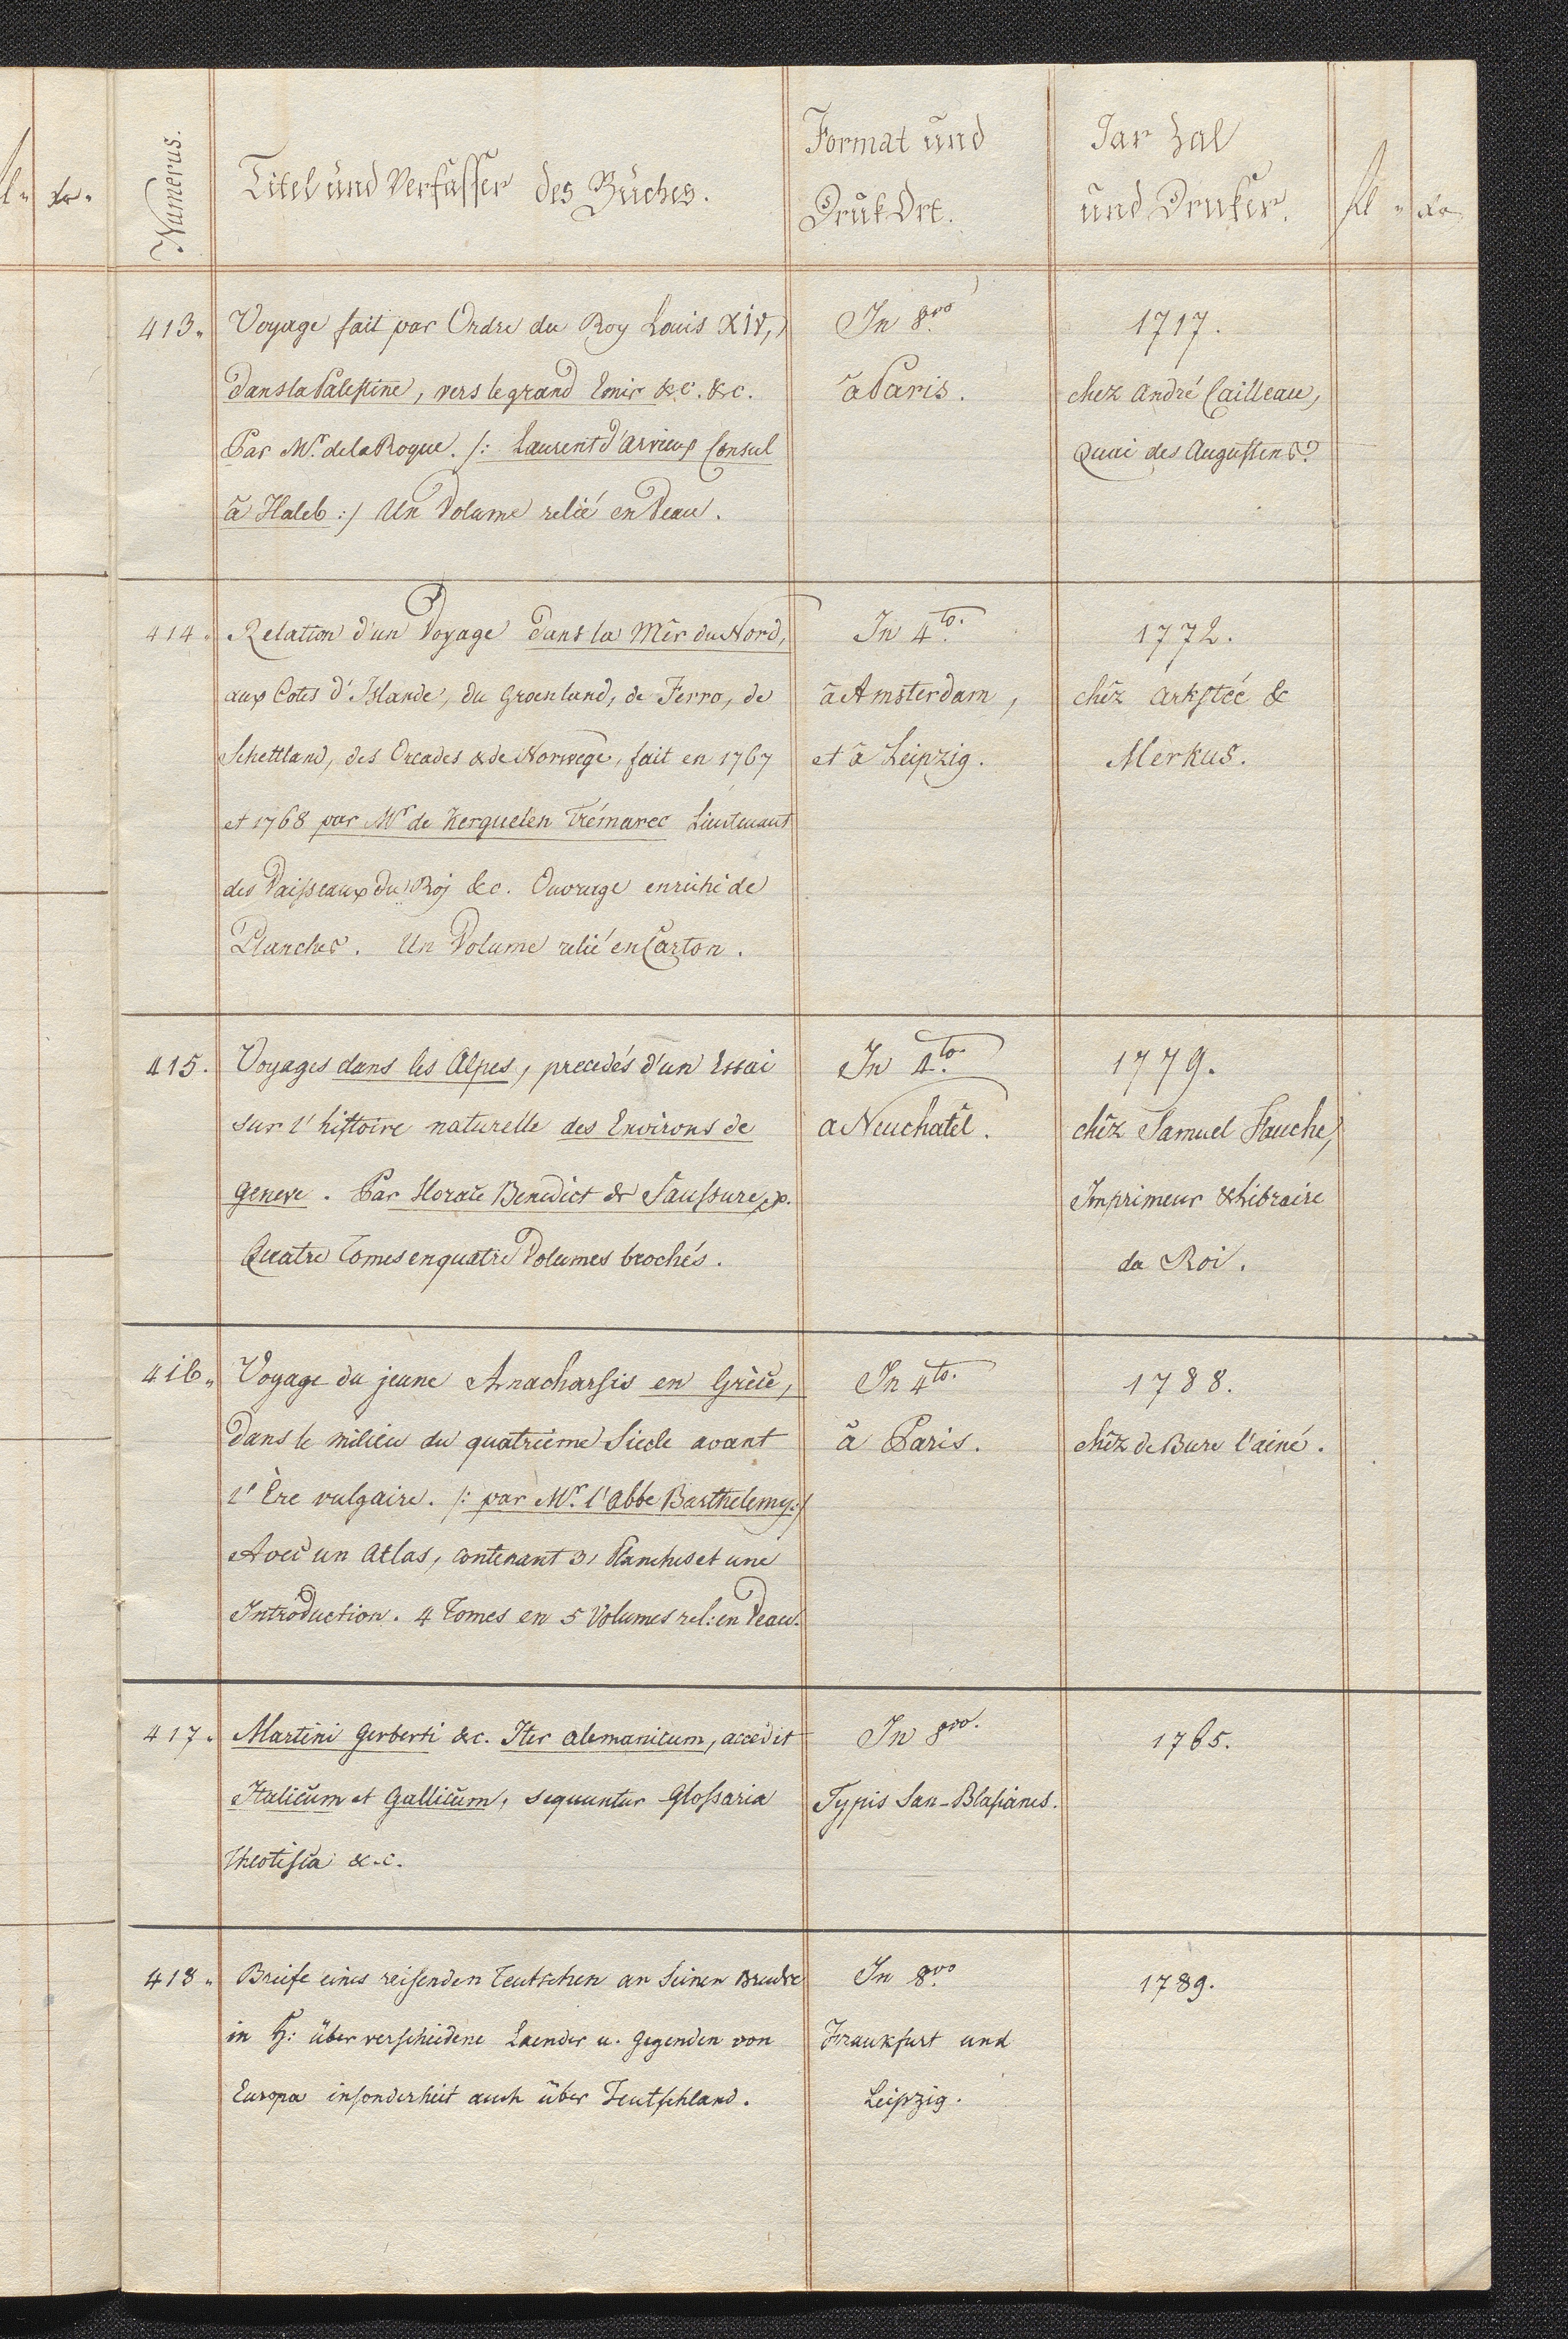 fl " xr "
Numerus.
Titel und Verfasser des Buches.
Format und
Druk Ort.
Jar Zal
und Druker.
fl " xr
413 "
Voyage fait par Ordre du Roy Louis XIV,
dans la Palestine, vers le grand Emir &c. &c.
Par Mr. de la Roque. /: Laurent d'Arvieux Consul
à Haleb :/ Un Volume relié en Veau.
In 8vo
à Paris.
1717.
chez André Cailleau,
Quai des Augustins.
414 "
Relation d'un Voyage dans la Mêr du Nord,
aux Cotes d'Islande, du Groenland, de Ferro, de
Schettland, des Orcades & de Norwège, fait en 1767
et 1768 par Mr de Kerguelen Trémarec Lieutenant
des Vaisseaux du Roj &c. Ouvrage enrichi de
Planches. Un Volume relié en Carton.
In 4to.
à Amsterdam,
et à Leipzig.
1772.
chêz Arkstée &
Merkus.
415.
Voyages dans les Alpes, precedés d'un Essai
sur l'histoire naturelle des Environs de
Geneve. Par Horace Benedict de Saussure,
Quatre Tomes en quatre Volumes brochés.
In 4to.
a Neuchatêl.
1779.
chêz Samuel Fauche,
Imprimeur & Libraire
du Roi.
416 "
Voyage du jeune Anacharsis en Grèce,
dans le milieu du quatrième Siecle avant
l'Ère vulgaire. /: par Mr. l'Abbe Barthelemy :/
Avec un Atlas, contenant 31 Planches et une
Introduction. 4 Tomes en 5 Volumes rel: en Veau.
In 4to.
à Paris.
1788.
chêz de Bure l'ainé.
417 "
Martini Gerberti &c. Iter alemanicum, accedit
Italicum et Gallicum, sequuntur Glossaria
Theotisca &.c.
In 8vo.
Typis San-Blasianis.
1765.
418 "
Briefe eines reisenden Teutschen an seinen Brudre
in H: über verschiedene Laender u. Gegenden von
Europa insonderheit auch über Teutschland.
In 8vo
Frankfurt und
Leipzig.
1789.